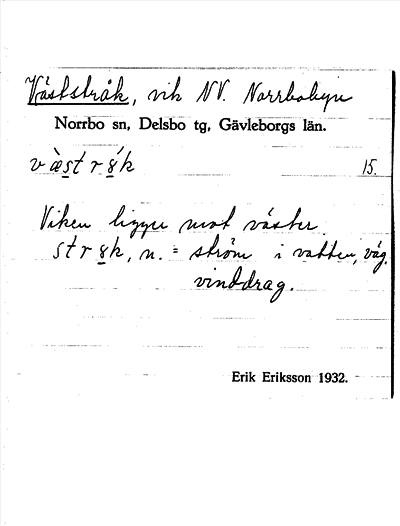 Väststråk, vik NV. Norrbobyn
Norrbo sn, Delsbo tg, Gävleborgs län.
væ̀str8́k 15.
Viken ligger mot väster.
str8k, n. = ström i vatten, väg,
vinddrag.
Erik Eriksson 1932.